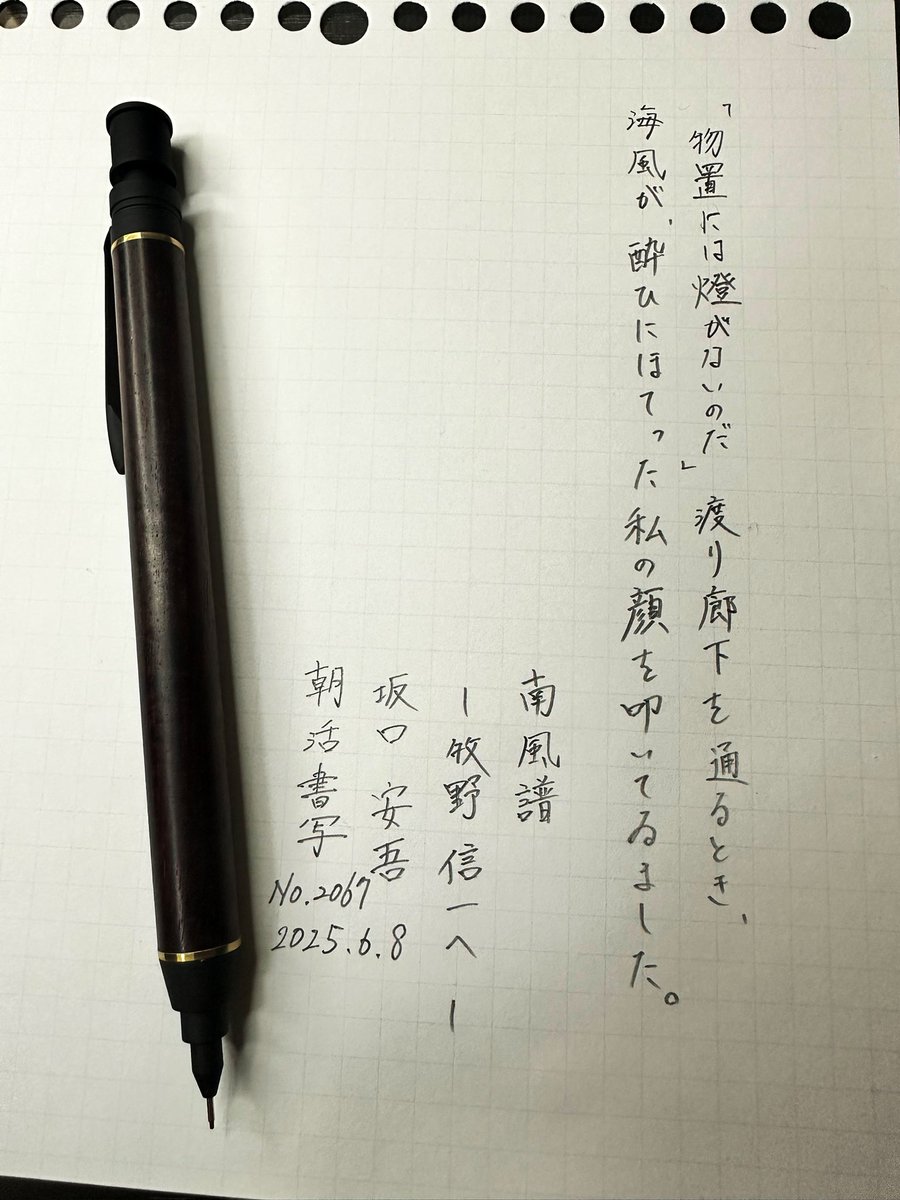 「物置には燈がないのだ」渡り廊下を通るとき、
海風が、酔ひにほてった私の顔を叩いてゐました。
南風譜
ー牧野信一へー
坂口 安吾
朝活書写
No.2067
2025.6.8